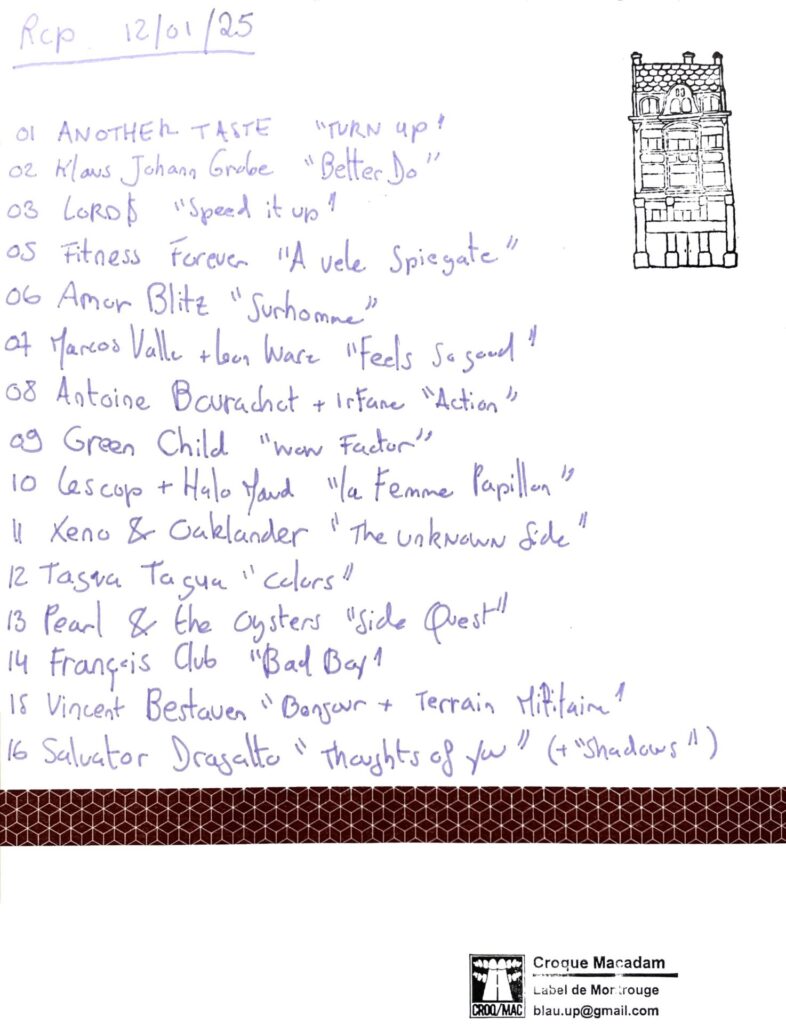 Rcp 12/01/25
01 ANOTHER TASTE "TURN up"
02 Klaus Johann Grobe "Better Do"
03 LORD$ "Speed it up"
05 Fitness Forever "A vele Spiegate"
06 Amor Blitz "Surhomme"
07 Marcos Valle + Leon Ware "Feels So good"
08 Antoine Bourachot + Irfane "Action"
09 Green Child "wow Factor"
10 Lescop + Halo Maud "la Femme Papillon"
11 Xeno & Oaklander "The UNKNOWN Side"
12 Tagua Tagua "Colors"
13 Pearl & the Oysters "Side Quest"
14 François Club "Bad Boy"
15 Vincent Bestaven "Bonjour + Terrain Militaire"
16 Salvator Dragatto "Thoughts of you" (+ "Shadows")
CROQ/MAC
Croque Macadam
Label de Montrouge
blau.up@gmail.com